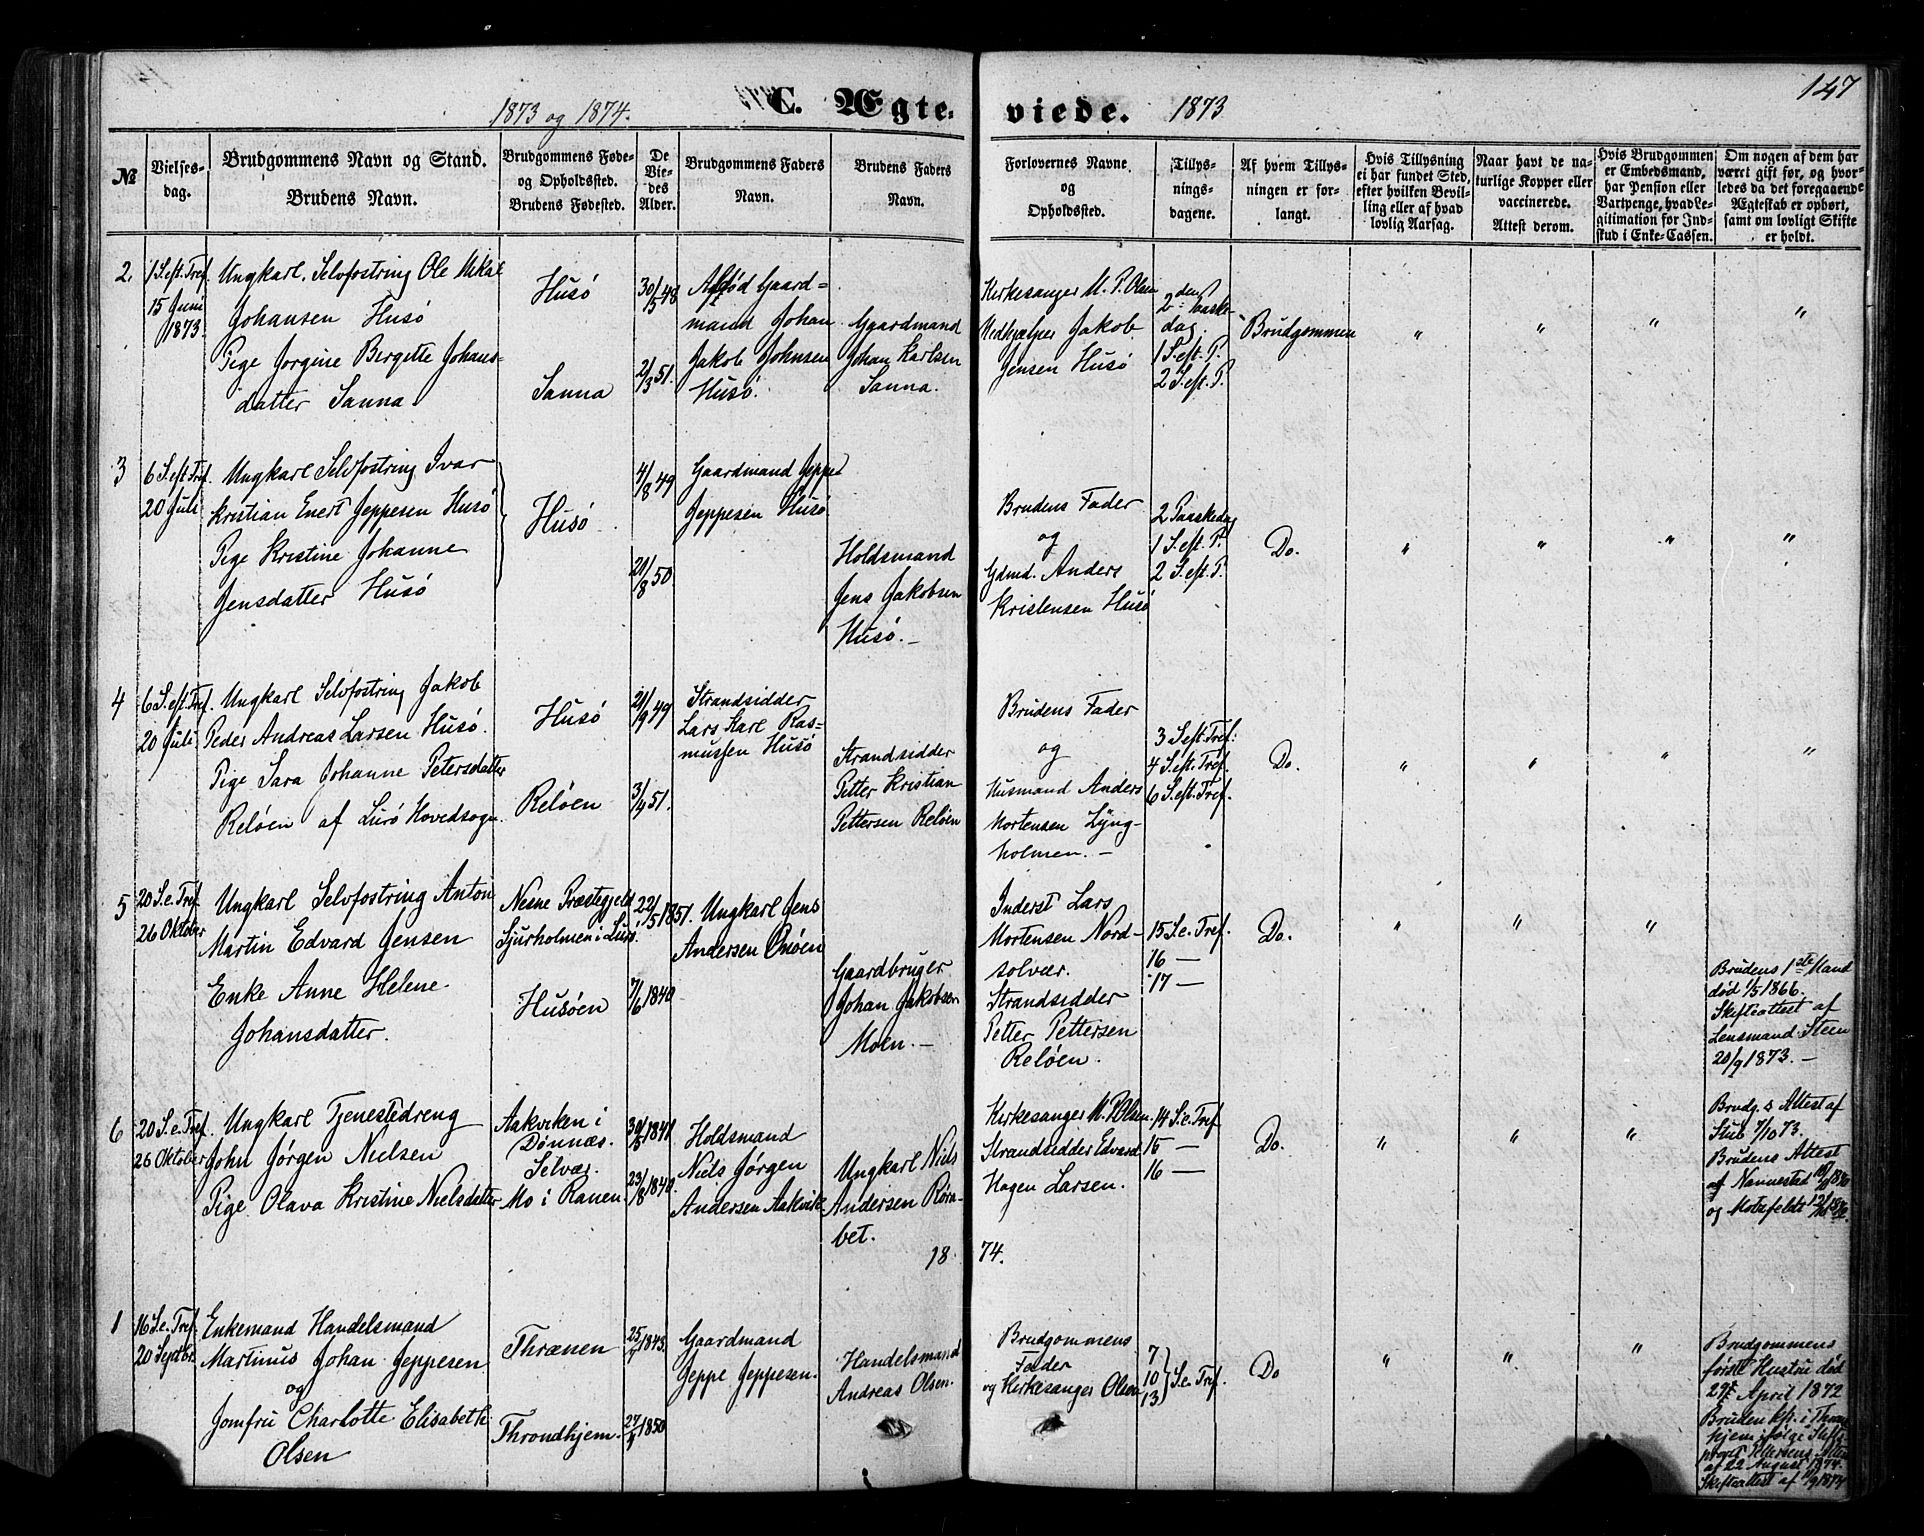 147
1873 og 1874.
C. Ægte-
viede.
1873
№
Vielses-
dag.
Brudgommens Navn og Stand.
Brudens Navn.
Brudgommens Føde-
og Opholdssted.
Brudens Fødested.
De
Vie-
des
Alder.
Brudgommens Faders
Navn.
Brudens Faders
Navn.
Forlovernes Navne
og
Opholdssted.
Tillys-
nings-
dagene.
Af hvem Tillys-
ningen er for-
langt.
Hvis Tillysning
ei har fundet Sted,
efter hvilken Bevil-
ling eller af hvad
lovlig Aarsag.
Naar havt de na-
turlige Kopper eller
vaccinerede.
Attest derom.
Hvis Brudgommen
er Embedsmand,
har Pension eller
Vartpenge, hvad Le-
gitimation for Ind-
skud i Enke-Cassen.
Om nogen af dem har
været gift før, og hvor-
ledes da det foregaaende
Ægteskab er ophørt,
samt om lovligt Skifte
er holdt.
2.
1 S.eft.Tref.
15 Juni
1873.
Ungkarl, Selvfostring Ole Mikal
Johansen Husö
Pige Jorgine Birgitte Johans-
datter Sanna
Husö
Sanna
30/5 48
2/3 51.
Afdød Gaard-
mand Johan
Jakob Johnsen
Husö.
Gaardmand
Johan Karlsen
Sanna.
Kirkesanger M. P. Olsen
Medhjælper Jakob
Jensen Husö
2den Paaske-
dag.
1 S.eft.P.
2 S.eft.P.
Brudgommen
" " " "
3
6 S.eft.Tref.
20 Juli
Ungkarl Selvfostring Ivar
Kristian Enert Jeppesen Husö
Pige Kristine Johanne
Jensdatter Husö
Husö
4/8 49
21/8 50
Gaardmand Jeppe
Jeppesen Husö
Holdsmand
Jens Jakobsen
Husö.
Brudens Fader
og
Gdmd. Anders
Kristensen Husö
2 Paaskedag
1 S.eft.P.
2 S.eft.P.
Do.
" " " "
4
6 S.eft.Tref.
20 Juli
Ungkarl Selvfostring Jakob
Peder Andreas Larsen Husö.
Pige Sara Johanne Petersdatter
Reløen af Lurö Hovedsogn.
Husö
Reløen
21/9 49
3/4 51.
Strandsidder
Lars Karl Ras-
mussen Husö
Strandsidder
Petter Kristian
Pettersen Reløen
Brudens Fader
og
Husmand Anders
Mortensen Lyng-
holmen.
3 S.eft.Tref.
4 S.eft.Tref.
6 S.eft.Tref.
Do.
" " " "
5
20 S.e.Tref.
26 Oktober
Ungkarl Selvfostring Anton
Martin Edvard Jensen
Enke Anne Helene
Johansdatter.
Nesne Præstegjeld
Sjurholmen i Lurö.
Husöen
22/5 1851.
7/6 1840.
Ungkarl Jens
Andersen Onöen
Gaardbruger
Johan Jakobsen
Moen.
Inderst Lars
Mortensen Nord-
solvær.
Strandsidder
Petter Pettersen
Reløen.
15 S.e.Tref.
16 —
17 —
Do.
" " "
Brudens 1ste Mand
død 1/5 1866.
Skifteattest af
Lensmand Steen
20/9 1873. —
6
20 S.e.Tref.
26 Oktober
Ungkarl Tjenestedreng
John Jørgen Nielsen
Pige Olava Kristine Nielsdatter
Aakviken i
Dönnæs.
Selvær.
Mo i Ranen.
23/8 1840.
Holdsmand
Niels Jørgen
Andersen Aakvik.
Ungkarl Niels
Andersen Rörn-
bet.
Kirkesanger M. P. Olsen.
Strandsidder Edvard
Hagen Larsen.
14 S.e.Tref.
15 —
16 —
Do.
" " "
Brudg.s Attest af
Stub 7/10 73.
Brudens Attest
af Nannestad
og Motzfeldt
18 74.
1
16 S.e.Tref.
20 Septbr.
Enkemand Handelsmand
Martinus Johan Jeppesen
og
Jomfru Charlotte Elisabeth
Olsen
Thrænen
Throndhjem.
1843.
1850
Gaardmand
Jeppe Jeppesen.
Handelsmand
Andreas Olsen.
Brudgommens
Fader
og Kirkesanger Olsen
7
10
13
S.e.Tref.
Do
" " "
Brudgommens
første Hustru død
29 April 1872
Bruden
hjem ifølge Stifts-
provst Pettersens Attest
af 22 August 1874.
Skifteattest af